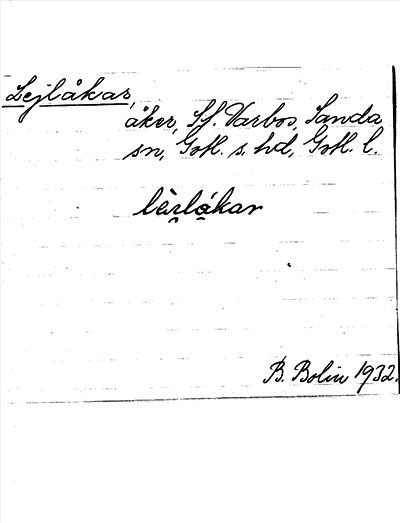 Lejlåkar,
åker, Sf. Varbos, Sanda
sn, Gotl. s. hd, Gotl. l.
lèrlákar
B. Bolin 1932.